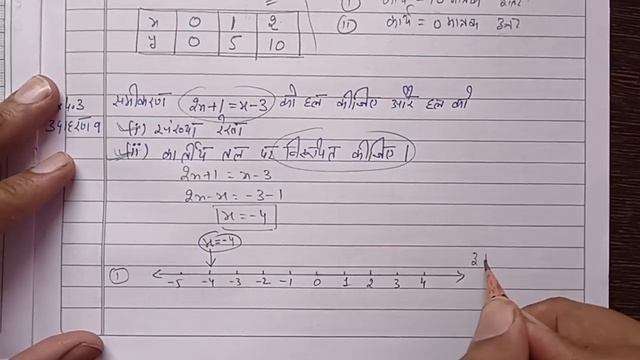 (i) कार्य = 10 मात्रक
(ii) कार्य = 0 मात्रक
x 0 1 2
y 0 5 10
4.3 समीकरण 2x+1 = x-3 को हल कीजिए और हल को
उदाहरण 9 (i) संख्या रेखा
(ii) कार्तीय तल पर निरूपित कीजिए।
2x+1 = x-3
2x-x = -3-1
x = -4
x = -4
(I) -5 -4 -3 -2 -1 0 1 2 3 4